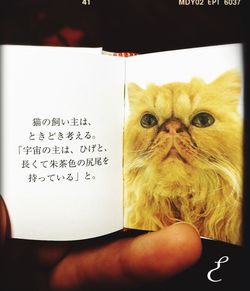 41
MDY02 EPT 6037
猫の飼い主は、
ときどき考える。
「宇宙の主は、ひげと、
長くて朱茶色の尻尾を
持っている」と。